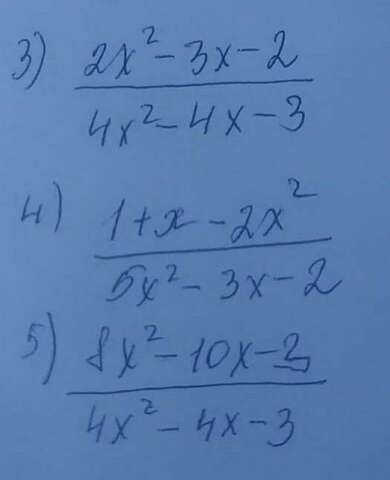 3) 2x² - 3x - 2
4x² - 4x - 3
4) 1 + x - 2x²
5x² - 3x - 2
5) 8x² - 10x - 3
4x² - 4x - 3